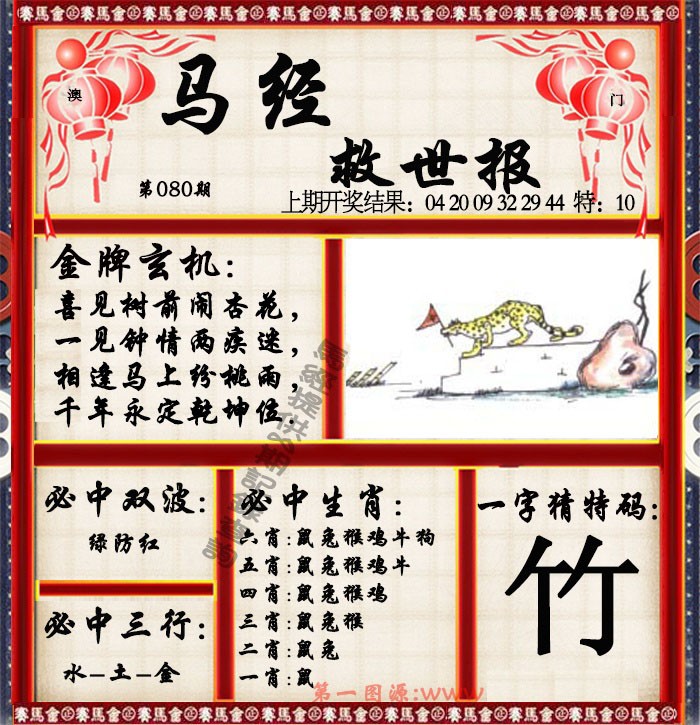 賽馬會金賽馬會金賽馬會金賽馬會金賽馬會金賽馬會金賽馬會金
澳
门
马经
救世报
第080期
上期开奖结果：04 20 09 32 29 44 特：10
金牌玄机：
喜见树前闹杏花，
一见钟情两痴迷，
相逢马上纷桃雨，
千年永定乾坤位.
必中双波：
绿防红
必中三行：
水-土-金
必中生肖：
六肖:鼠兔猴鸡牛狗
五肖:鼠兔猴鸡牛
四肖:鼠兔猴鸡
三肖:鼠兔猴
二肖:鼠兔
一肖:鼠
一字猜特码：
竹
第一图源:www